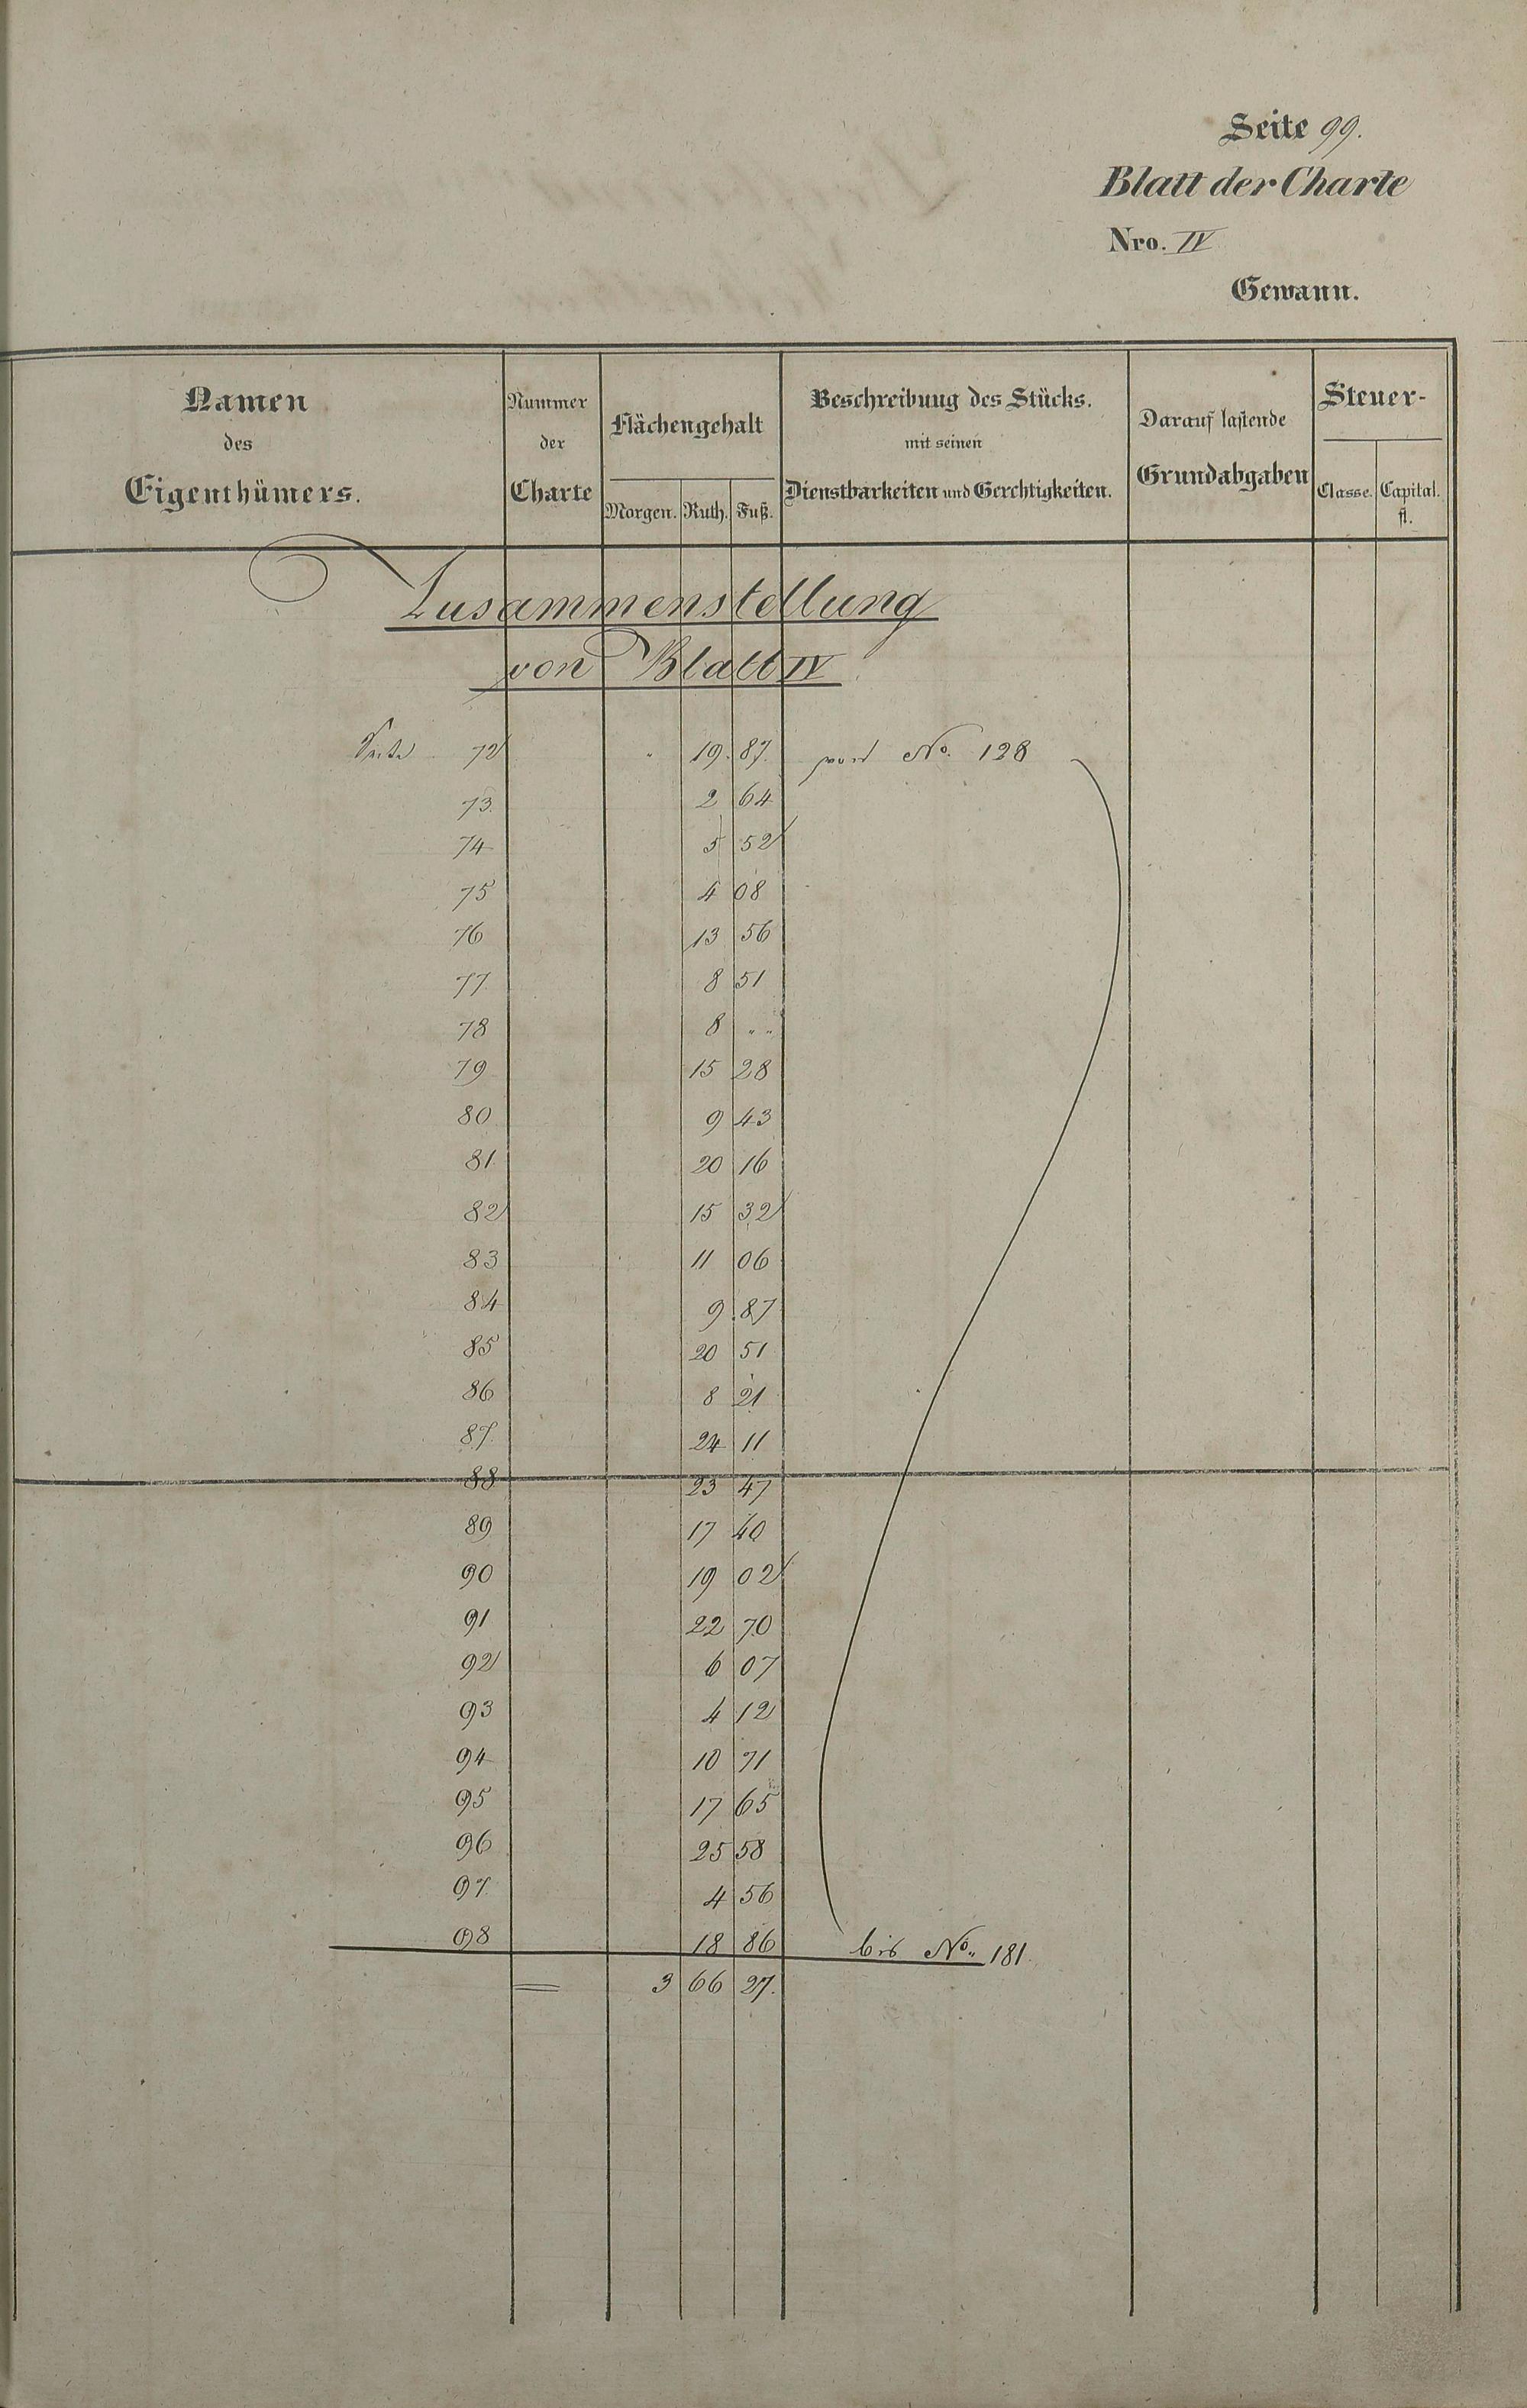 Seite 99.
Blatt der Charte
Nro. IV
Gewann.
Namen des Eigenthümers.
Nummer der Charte
Flächengehalt
Morgen. Ruth. Fuß.
Beschreibung des Stücks. mit seinen Dienstbarkeiten und Gerechtigkeiten.
Darauf lastende Grundabgaben
Steuer-
Classe. Capital. fl.
Zusammenstellung
von Blatt IV
Seite 72 " 19. 87. von No. 128
73. 2 64
74 5 52
75 4 08
76 13 56
77 8 51
78 8 " "
79 15 28
80 9 43
81. 20 16
82 15 32
83 11 06
84 9. 87
85 20 51
86 8 21
87. 24 11
88 23 47
89 17 40
90 19 02
91 22 70
92 6 07
93 4 12
94 10 71
95 17 65
96 25 58
97. 4 56
98 18 86 bis No. 181.
= 3 66 27.